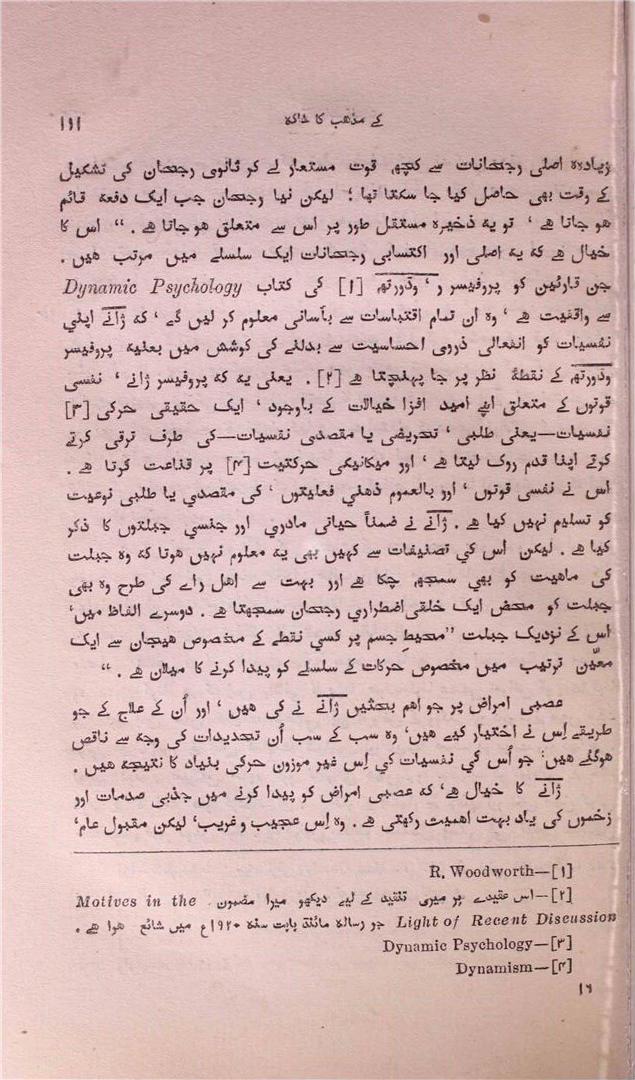 کے مذهب کا خاکہ ۱۲۱
زیادہ اصلی رجحانات سے کچھ قوت مستعار لے کر ثانوی رجحان کی تشکیل
کے وقت بھی حاصل کیا جا سکتا تھا ؛ لیکن نیا رجحان جب ایک دفعہ قائم
ھو جاتا ھے ، تو یہ ذخیرہ مستقل طور پر اس سے متعلق ھوجاتا ھے . “ اس کا
خیال ھے کہ یہ اصلی اور اکتسابی رجحانات ایک سلسلے میں مرتب ھیں .
جن قارئین کو پروفیسر ر ، وڈورتھ [۱] کی کتاب Dynamic Psychology
سے واقفیت ھے ، وہ ان تمام اقتباسات سے بآسانی معلوم کر لیں گے ، کہ ژانے اپنی
نفسیات کو انفعالی ذروی احساسیت سے بدلنے کی کوشش میں بعینہ پروفیسر
وڈورتھ کے نقطۂ نظر پر جا پہنچتا ھے [۲] . یعنی یہ کہ پروفیسر ژانے ، نفسی
قوتوں کے متعلق اپنے امید افزا خیالات کے باوجود ، ایک حقیقی حرکی [۳]
نفسیات—یعنی طلبی ، تحریضی یا مقصدی نفسیات—کی طرف ترقی کرتے
کرتے اپنا قدم روک لیتا ھے ، اور میکانیکی حرکتیت [۴] پر قناعت کرتا ھے .
اس نے نفسی قوتوں ، اور بالعموم ذھنی فعلیتوں ، کی مقصدی یا طلبی نوعیت
کو تسلیم نہیں کیا ھے . ژانے نے ضمناً حیاتی مادری اور جنسی جبلتوں کا ذکر
کیا ھے . لیکن اس کی تصنیفات سے کہیں بھی یہ معلوم نہیں ھوتا کہ وہ جبلت
کی ماھیت کو بھی سمجھ چکا ھے اور بہت سے اھل راے کی طرح وہ بھی
جبلت کو محض ایک خلقی اضطراری رجحان سمجھتا ھے . دوسرے الفاظ میں ،
اس کے نزدیک جبلت ”محیطِ جسم پر کسی نقطے کے مخصوص ھیجان سے ایک
معیّن ترتیب میں مخصوص حرکات کے سلسلے کو پیدا کرنے کا میلان ھے . “
عصبی امراض پر جو اھم بحثیں ژانے نے کی ھیں ، اور اُن کے علاج کے جو
طریقے اِس نے اختیار کیے ھیں، وہ سب کے سب اُن تحدیدات کی وجہ سے ناقص
ھوگئے ھیں، جو اُس کی نفسیات کی اِس غیر موزون حرکی بنیاد کا نتیجہ ھیں .
ژانے کا خیال ھے، کہ عصبی امراض کو پیدا کرنے میں جذبی صدمات اور
زخموں کی یاد بہت اھمیت رکھتی ھے . وہ اِس عجیب و غریب، لیکن مقبول عام،
[۱]—R. Woodworth
[۲]—اس عقیدے پر میری تنقید کے لیے دیکھو میرا مضمون Motives in the
Light of Recent Discussion جو رسالہ مائنڈ بابت سنہ ۱۹۲۰ع میں شائع ھوا ھے .
[۳]—Dynamic Psychology
[۴]—Dynamism
۱۶